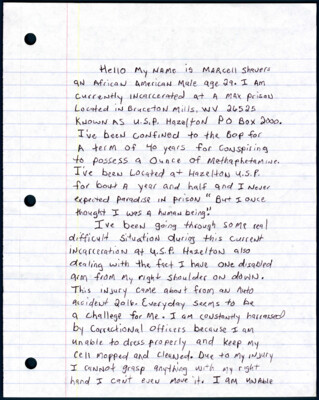 Hello My NAME is MARcell Showers
an African American Male age 29. I Am
currently incarcerated at A max prison
Located in Bruceton Mills, WV 26525
KNOWN AS U.S.P. Hazelton PO Box 2000.
I've been confined to the Bop for
A term of 40 years for Conspiring
to possess a Ounce of Methaphetamine.
I've been Located at Hazelton U.S.P.
for bout A year and half and I Never
expected paradise in prison "But I once
thought I was a human being".
I've been going through some real
difficult Situation during this current
Incarceration at U.S.P. Hazelton also
dealing with the fact I have one disabled
arm from my right shoulder on down.
This injury came about from an Auto
Accident 2016. Everyday seems to be
a challege for Me. I am constantly harrassed
by Correctional officers because I am
unable to dress properly and keep my
cell mopped and cleaned. Due to my injury
I cannot grasp anything with my right
hand I can't even move it. I am unable